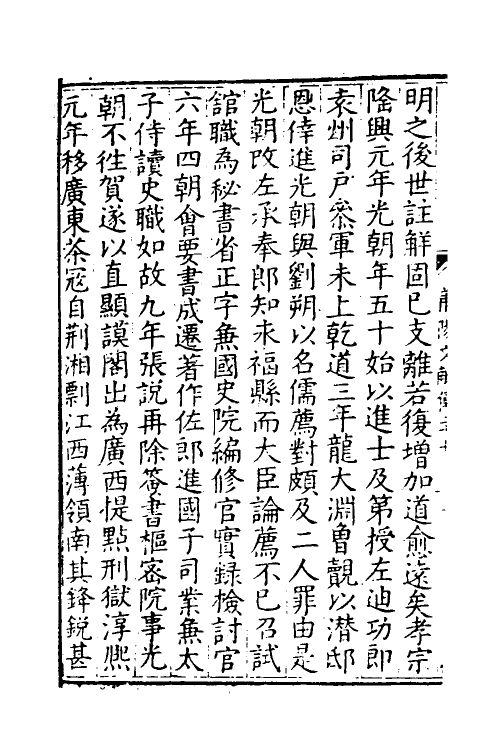 明之後世註解固已支離若復增加道愈遠矣孝宗
隆興元年光朝年五十始以進士及第授左迪功郎
袁州司戶叅軍未上乾道三年龍大淵曾覿以潛邸
恩倖進光朝與劉朔以名儒薦對頗及二人罪由是
光朝改左承奉郎知永福縣而大臣論薦不已召試
館職為秘書省正字兼國史院編修官實録檢討官
六年四朝會要書成遷著作佐郎進國子司業兼太
子侍讀史職如故九年張說再除簽書樞密院事光
朝不徃賀遂以直顯謨閣出為廣西提點刑獄淳熈
元年移廣東茶宼自荆湘剽江西薄嶺南其鋒銳甚